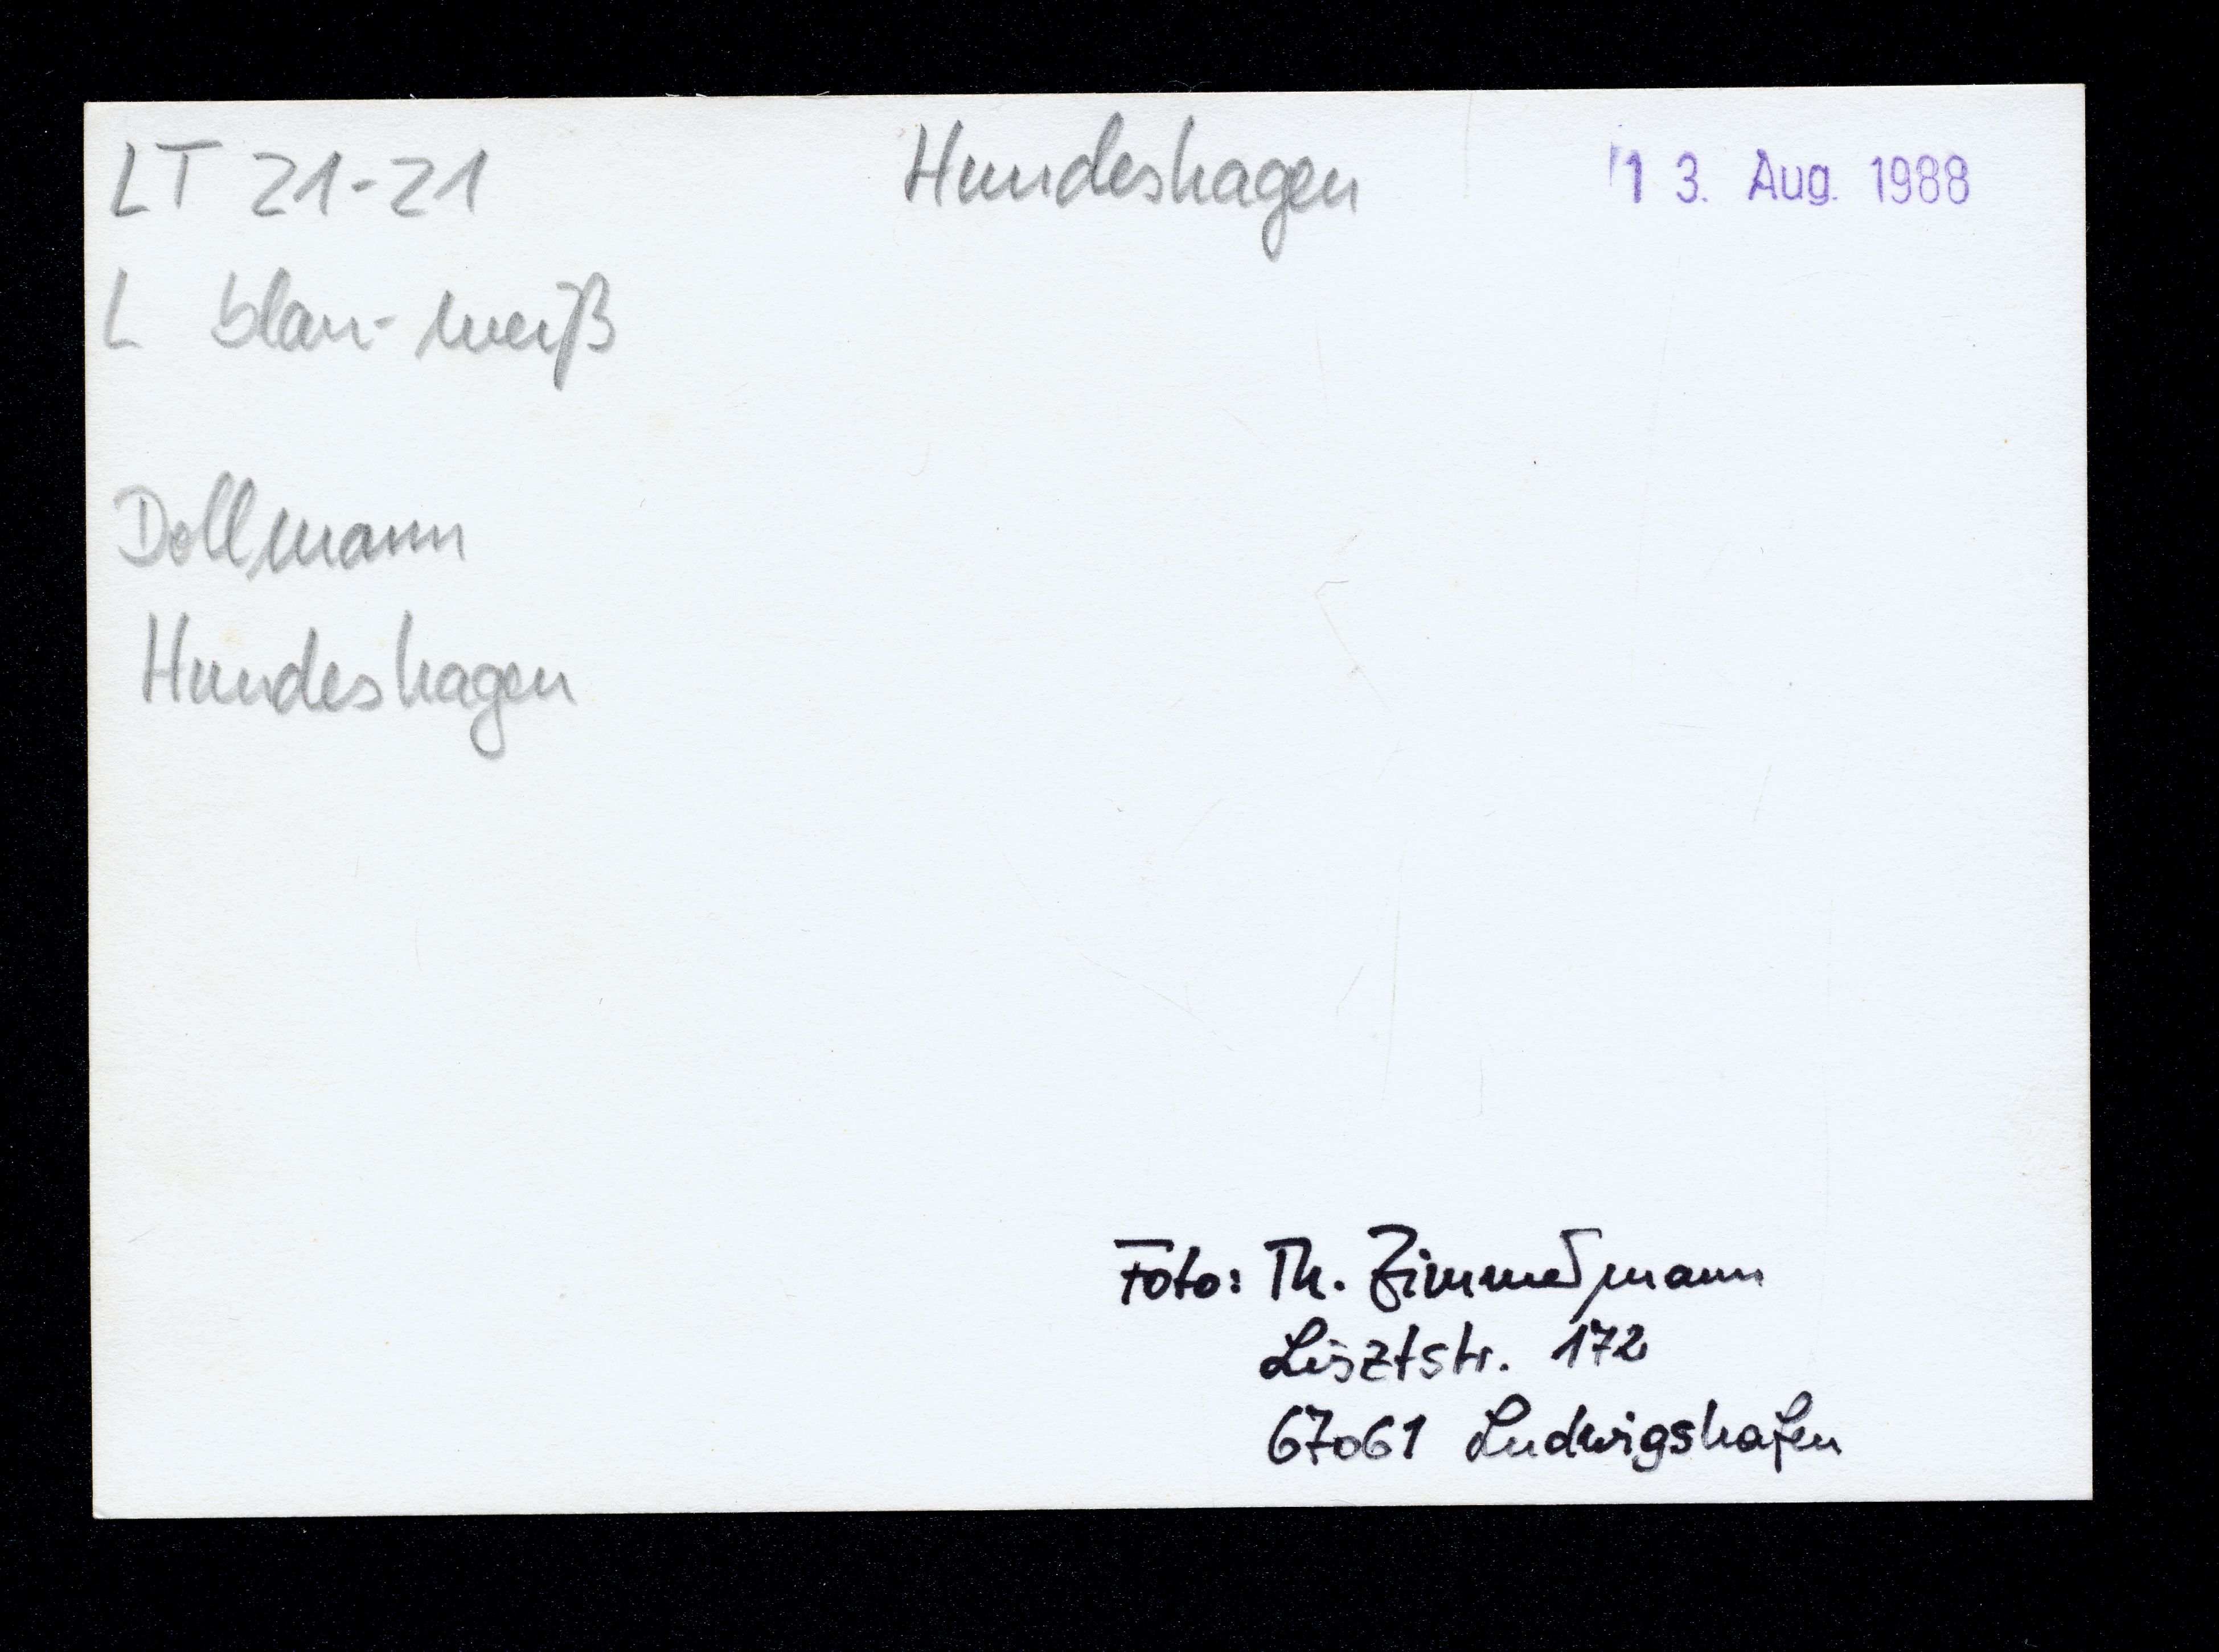 LT 21-21 Hundeshagen 13. Aug. 1988
L blau-weiß
Dollmann
Hundeshagen
Foto: Th. Zimmermann
Lisztstr. 172
67061 Ludwigshafen